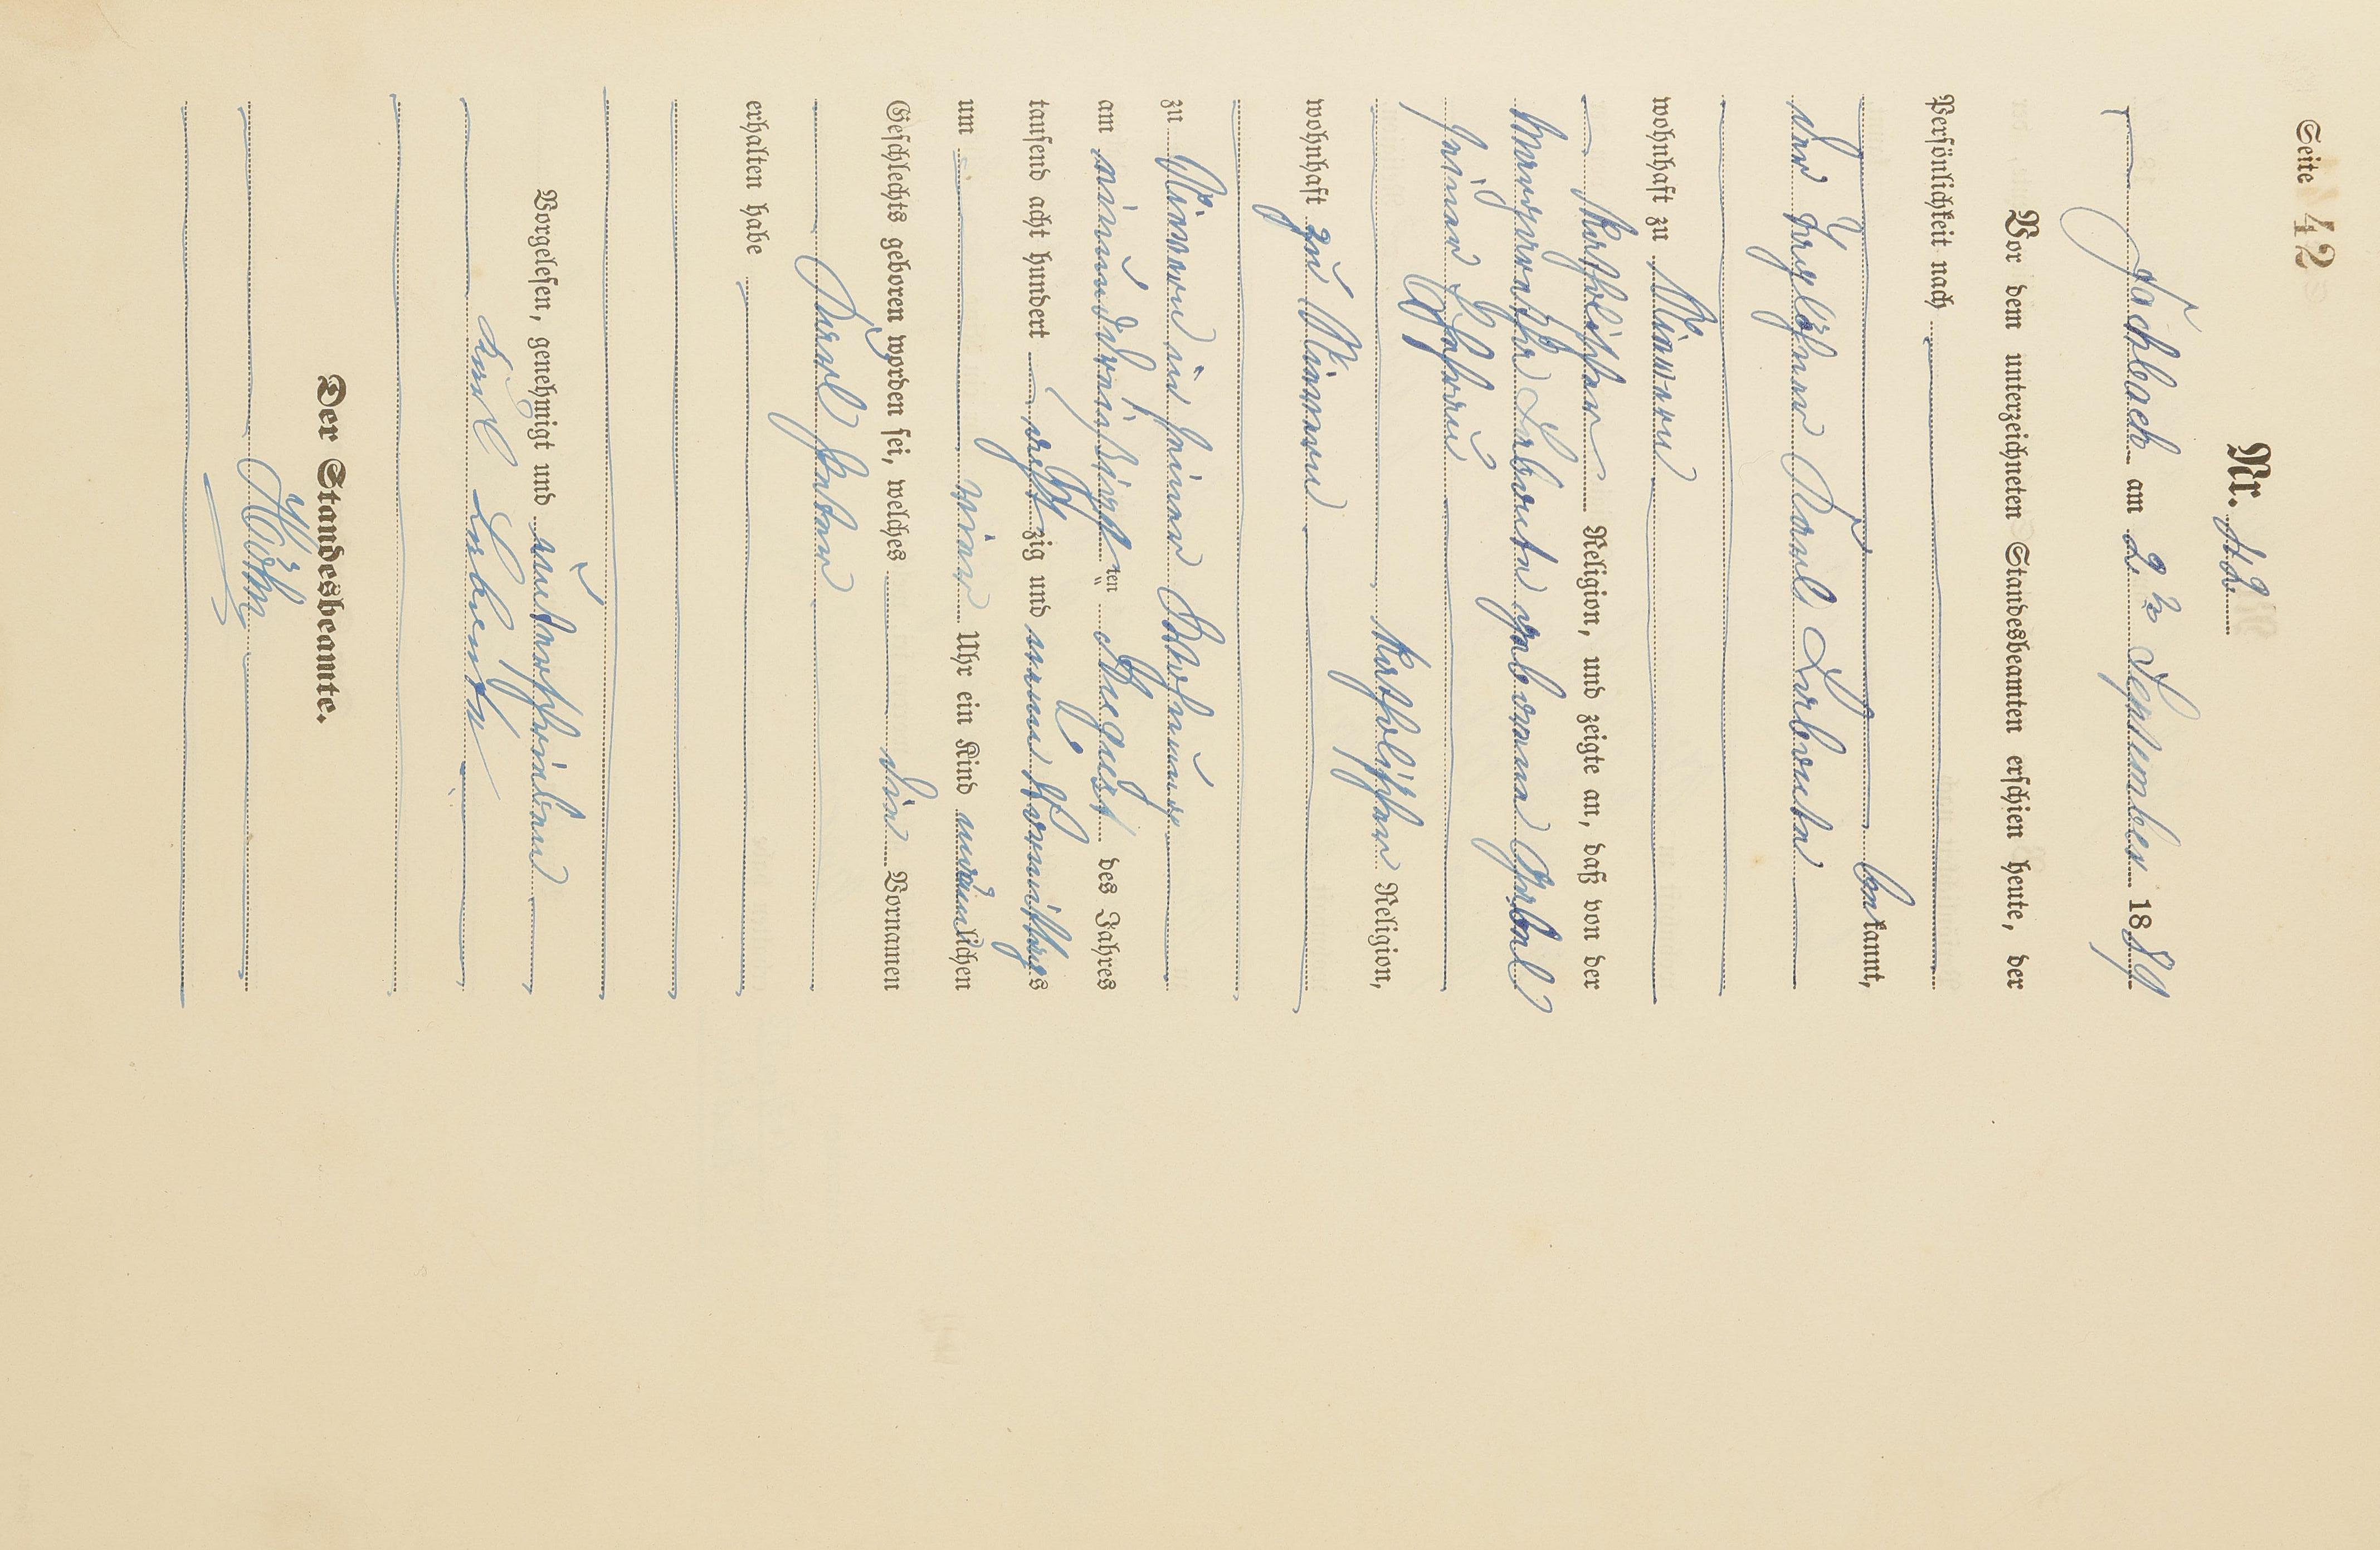 Seite 42
Nr. 42.
Fachbach am 2 ten September 1889
Vor dem unterzeichneten Standesbeamten erschien heute, der
Persönlichkeit nach
bekannt,
der Taglöhner Karl Labonte
wohnhaft zu Nievern
katholischer Religion, und zeigte an, daß von der
Margaretha Labonte geborenen Gebel
seiner Ehefrau
katholischer Religion,
wohnhaft zu Nievern
zu Nievern in seiner Wohnung
am einunddreißigsten August des Jahres
tausend acht hundert achtzig und neun Vormittags
um Uhr ein Kind männlichen
Geschlechts geboren worden sei, welches die Vornamen
Karl Peter
erhalten habe
Vorgelesen, genehmigt und unterschrieben
Karl Labonte
Der Standesbeamte.